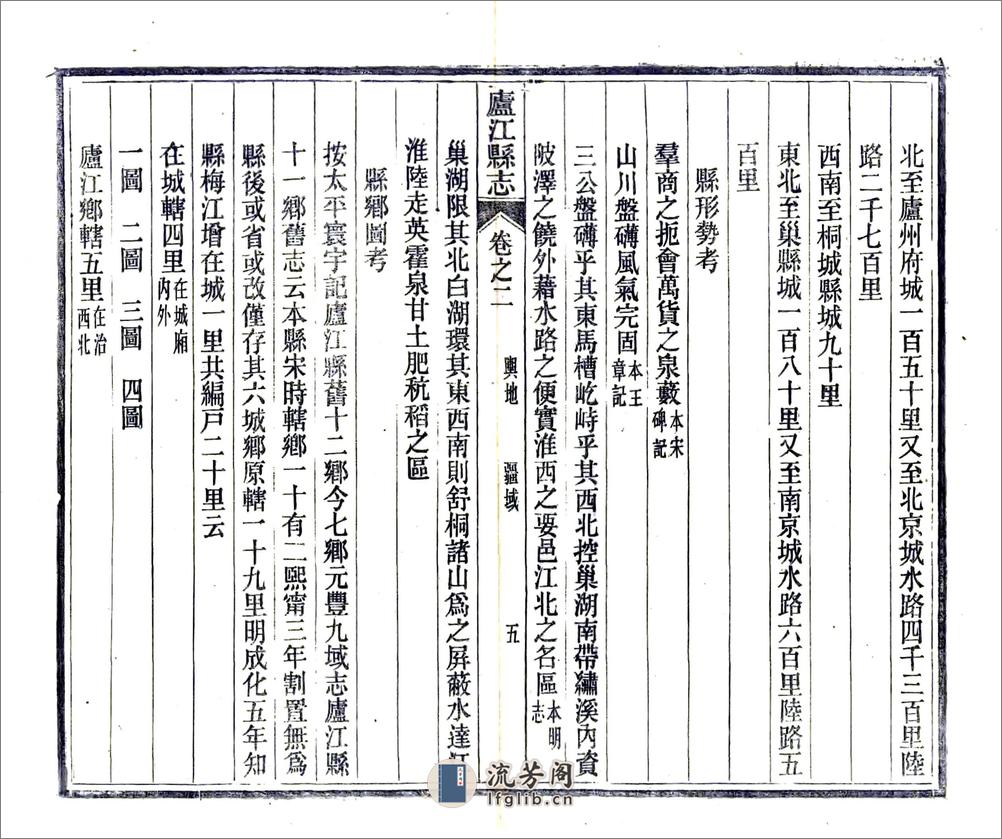 北至廬州府城一百五十里又至北京城水路四千三百里陸
路二千七百里
西南至桐城縣城九十里
東北至巢縣城一百八十里又至南京城水路六百里陸路五
百里
縣形勢考
羣商之扼會萬貨之泉藪本宋碑記
山川盤礴風氣完固本王章記
三公盤礴乎其東馬槽屹峙乎其西北控巢湖南帶繡溪內資
陂澤之饒外藉水路之便實淮西之要邑江北之名區本明志
廬江縣志 卷之二 輿地 疆域 五
巢湖限其北白湖環其東西南則舒桐諸山爲之屏蔽水達江
淮陸走英霍泉甘土肥秔稻之區
縣鄉圖考
按太平寰宇記廬江縣舊十二鄉今七鄉元豐九域志廬江縣
十一鄉舊志云本縣宋時轄鄉一十有二熙甯三年割置無爲
縣後或省或改僅存其六城鄉原轄一十九里明成化五年知
縣梅江增在城一里共編戸二十里云
在城轄四里在城廂內外
一圖 二圖 三圖 四圖
廬江鄉轄五里在治西北
流芳阁
lfglib.cn